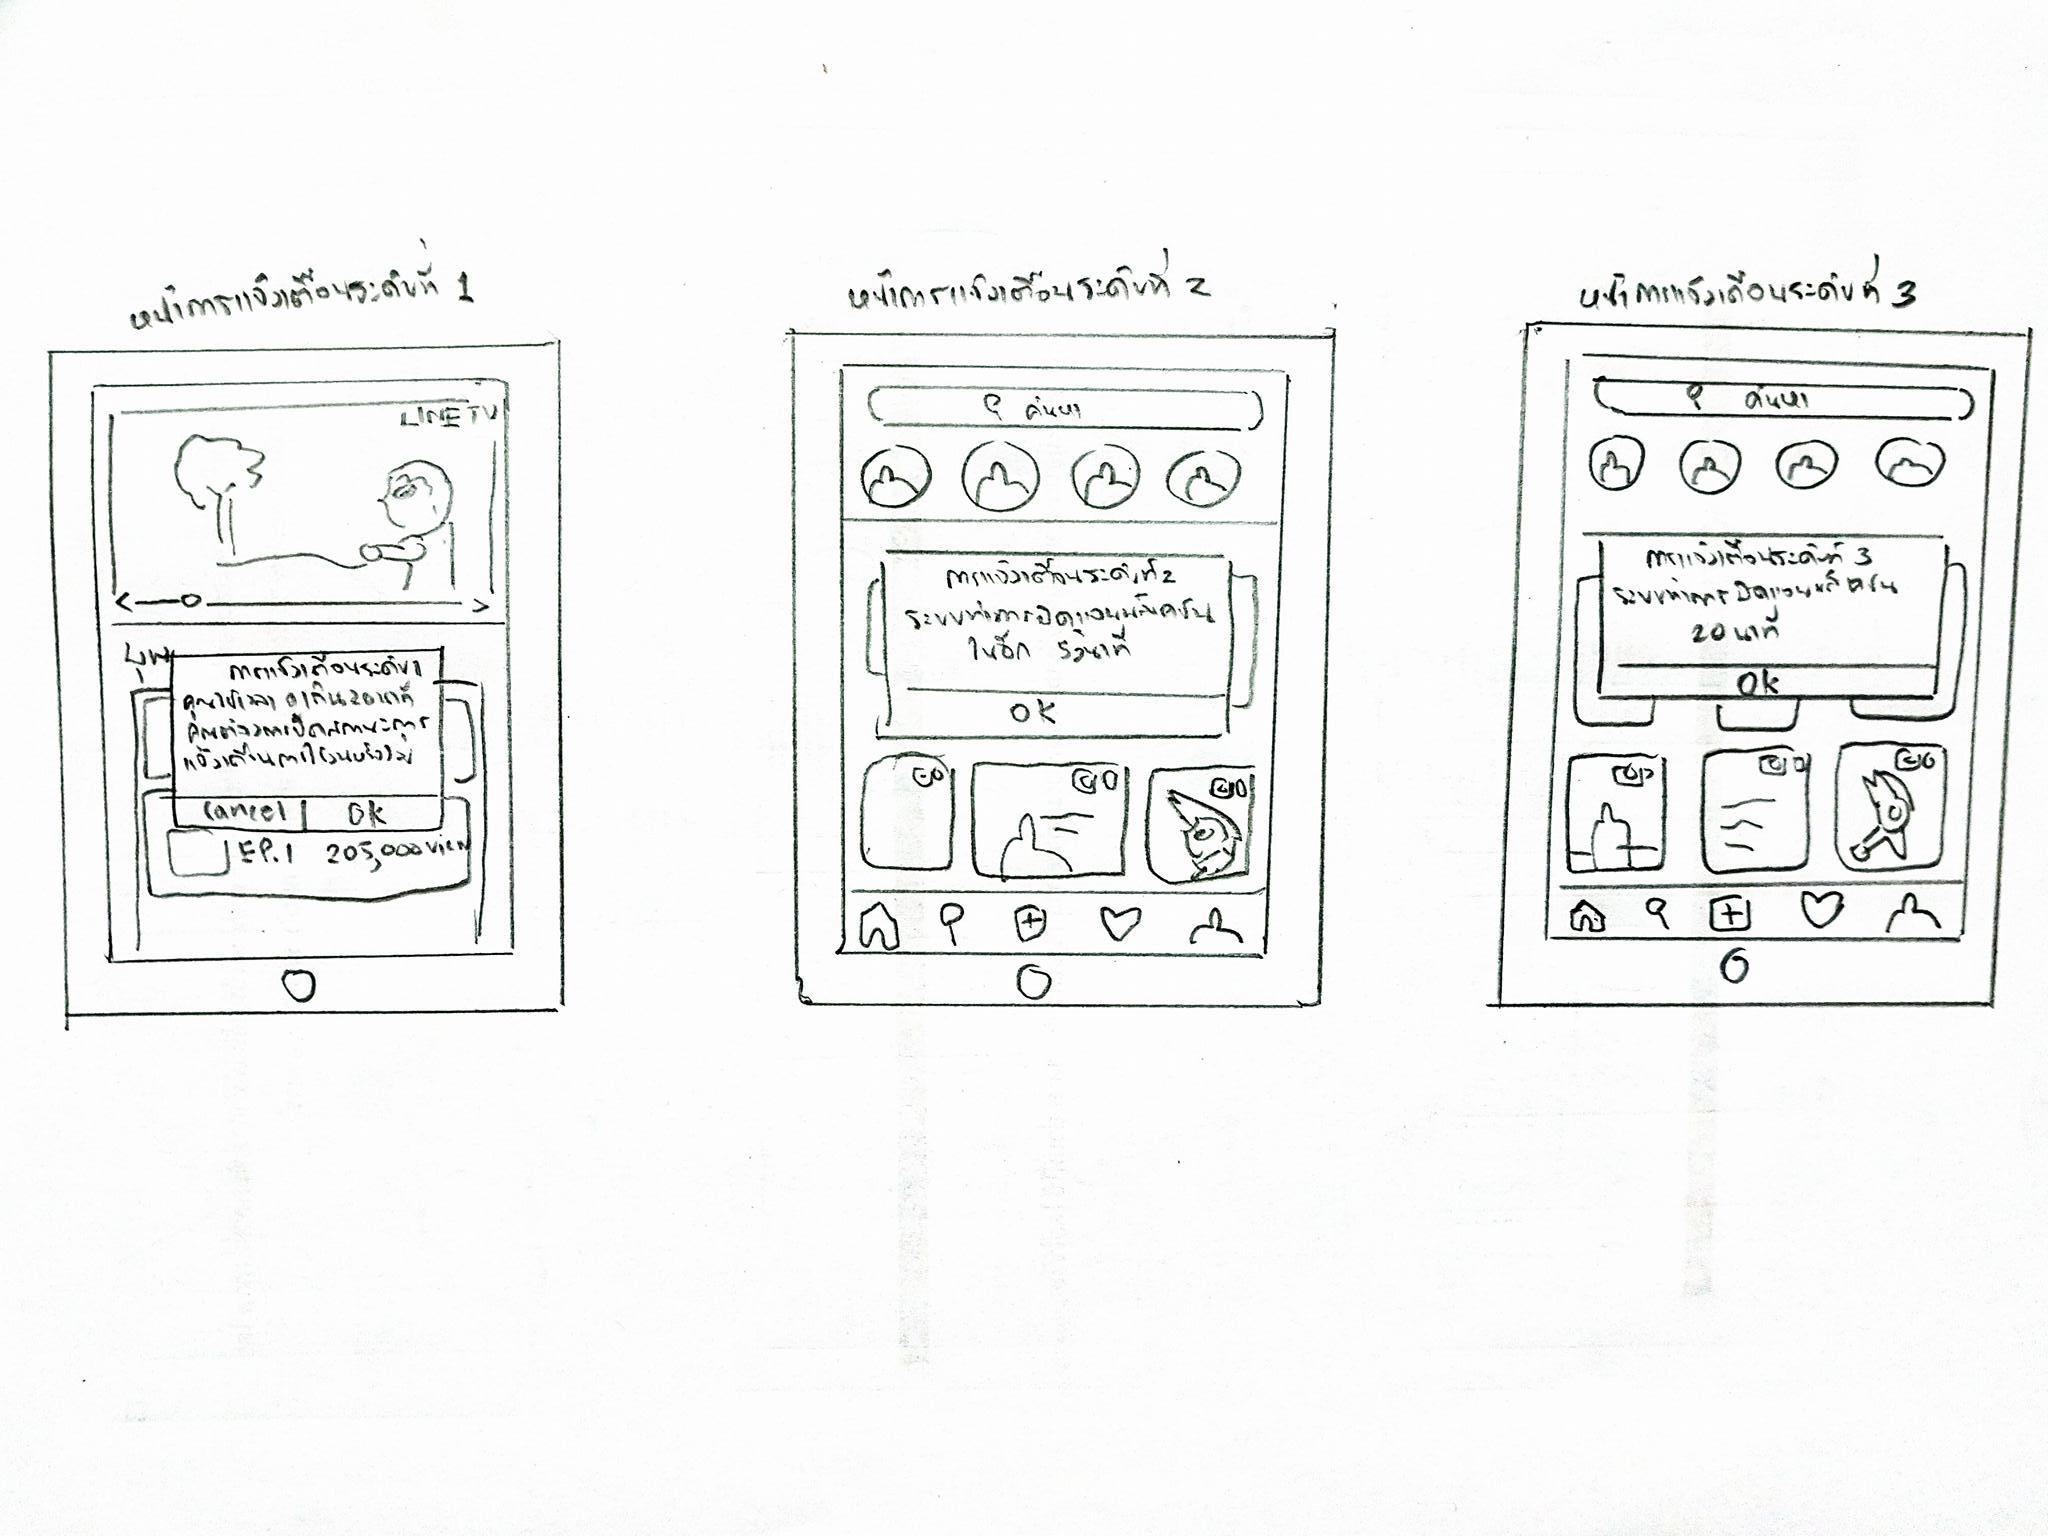 หน้าการแจ้งเตือนระดับที่ 1
LINE TV
การแจ้งเตือนระดับ 1
คุณใช้เวลา เกิน 20 นาที
คุณต้องการปิดสถานะการ
แจ้งเตือนการใช้งานหรือไม่
Cancel OK
EP.1 205,000 view
หน้าการแจ้งเตือนระดับที่ 2
ค้นหา
การแจ้งเตือนระดับที่ 2
ระบบทำการปิดแอพพลิเคชัน
ในอีก 5 วินาที
OK
หน้าการแจ้งเตือนระดับที่ 3
ค้นหา
การแจ้งเตือนระดับที่ 3
ระบบทำการปิดแอพพลิเคชัน
20 นาที
OK